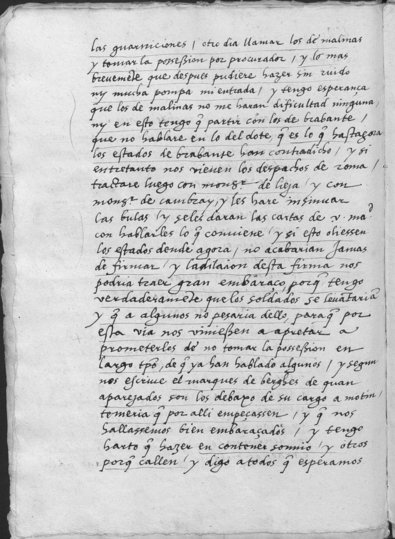 las guarniciones / otro dia llamar los de malinas
y tomar la possession por procurador / y lo mas
brevemẽte que despues pudiere hazer sin ruido
ny mucha pompa mi entrada / y tengo esperança
que los de malinas no me haran dificultad ninguna,
ny en esto tengo q̃ partir con los de brabante /
que no hablare en lo del dote q̃ es lo q̃ hasta gora
los estados de brabante han contradicho / y si
entretanto nos vienen los despachos de roma /
tractare luego con monsr de lieja / y con
monsr de cambray / y les hare insinuar
las bulas / y se les daran las cartas de v. mad
con hablarles lo q̃ conviene / y si esto oliessen
los estados dende agora / no acabarian Jamas
de firmar / y la dilaion desta firma nos
podria traer gran embaraço porq̃ tengo
verdaderamẽte que los soldados se levãtariã
y q̃ a algunos no pesaria dello, paraq̃ por
esta via nos viniessen a apretar a
prometerles de no tomar la possession en
largo tpõ, de q̃ ya han hablado algunos / y segun
nos escrive el marques de berghes de quan
aparejados son los debaxo de su cargo a motin /
temeria q̃ por alli empeçassen / y q̃ nos
hallassemos bien embaraçados / y tengo
harto q̃ hazer en contener / y otros
porq̃ callen / y digo a todos q̃ esperamos